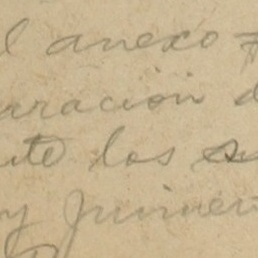 l anexo
aración d
te los su
y primer